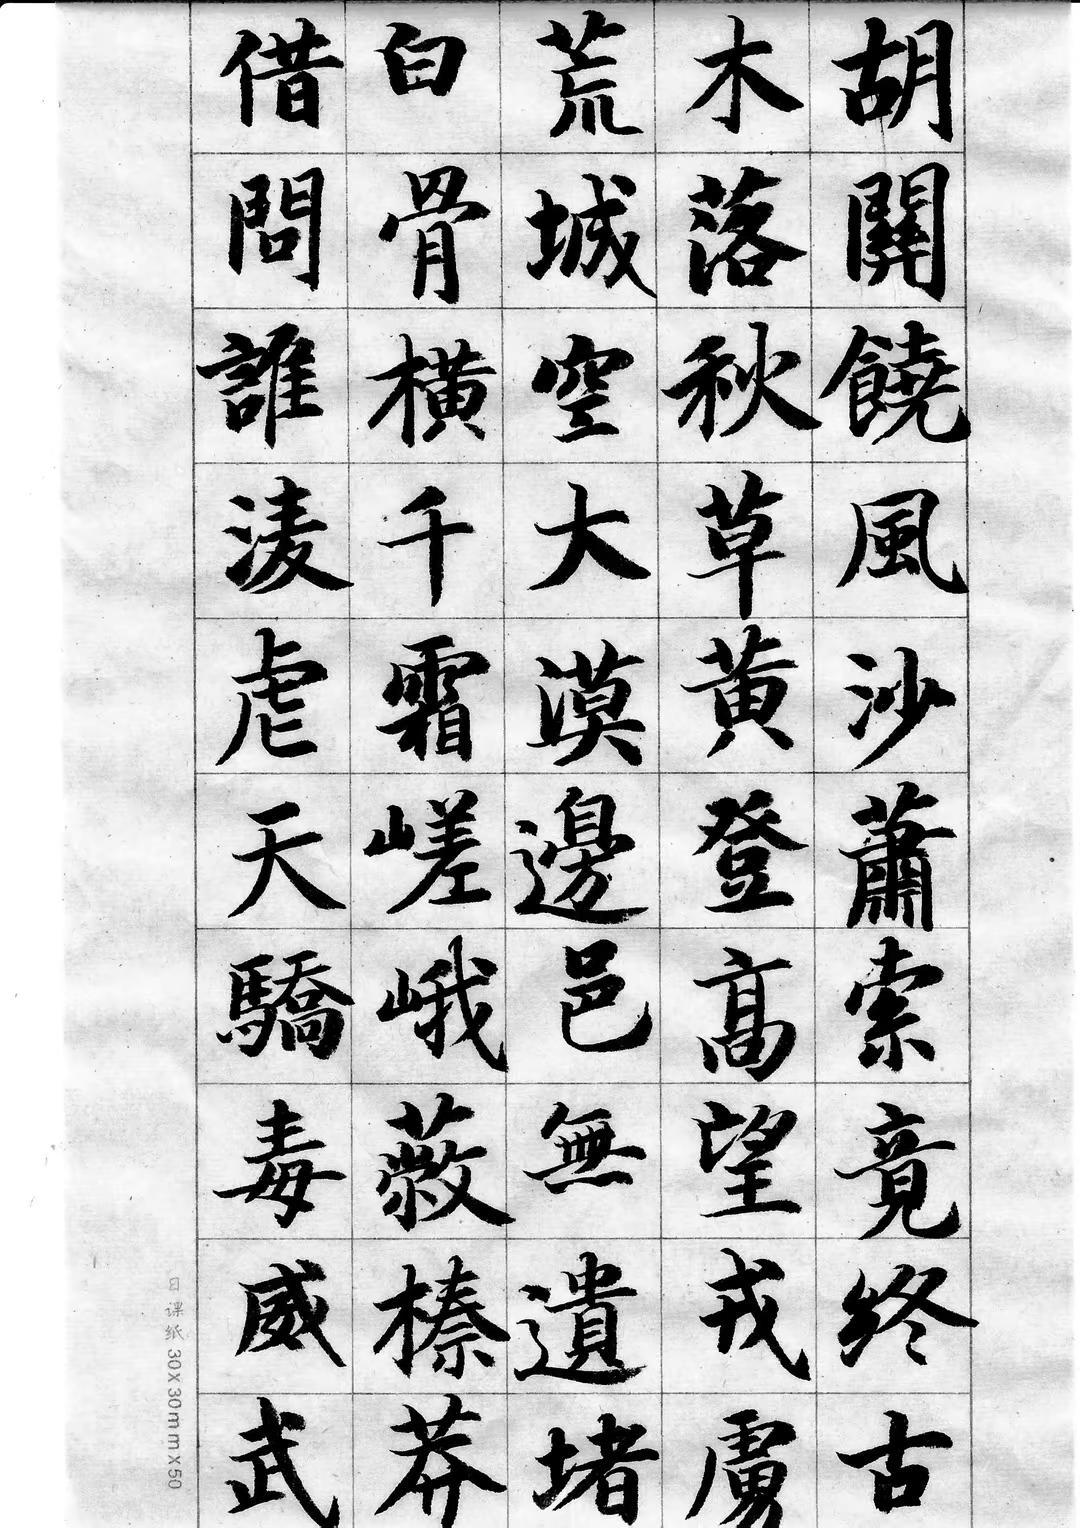 胡關饒風沙蕭索竟終古
木落秋草黄登高望戎虜
荒城空大漠邊邑無遺堵
白骨橫千霜嵯峨蔽榛莽
借問誰凌虐天驕毒威武
日课纸 30x30mmx50